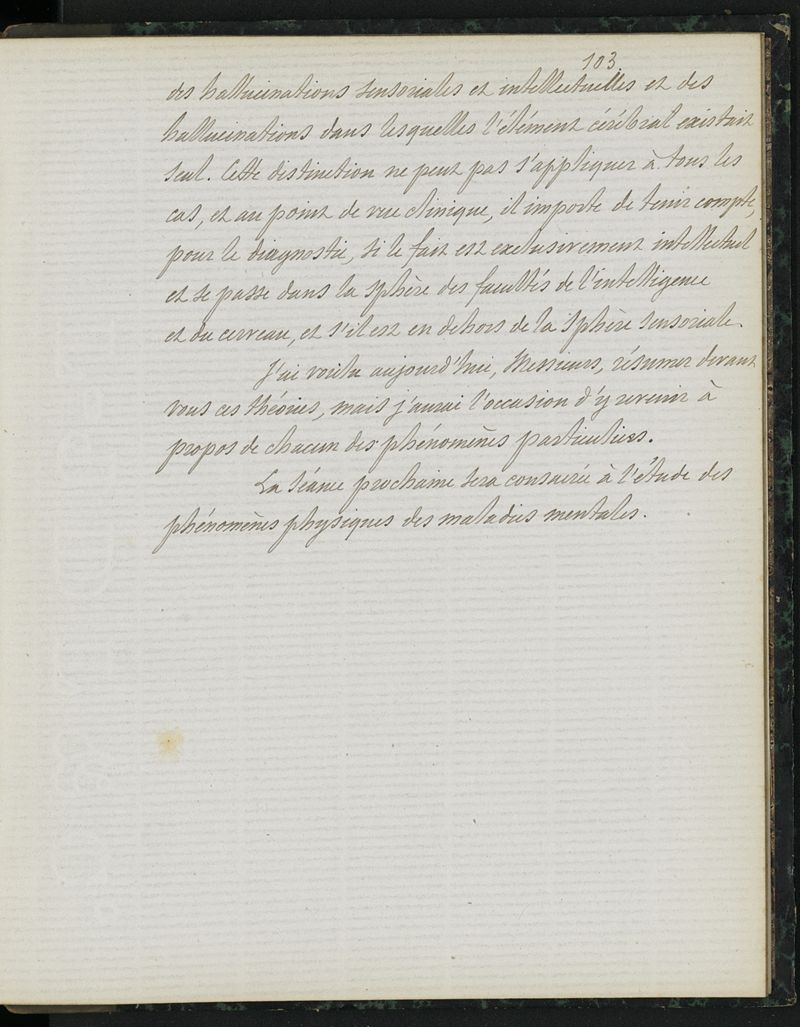 103
des hallucinations sensoriales et intellectuelles et des
hallucinations dans lesquelles l'élément cérébral existait
seul. Cette distinction ne peut pas s'appliquer à tous les
cas, et au point de vue clinique, il importe de tenir compte,
pour le diagnostic, si le fait est exclusivement intellectuel
et se passe dans la sphère des facultés de l'intelligence
et du cerveau, et s'il est en dehors de la sphère sensoriale.
J'ai voulu aujourd'hui, Messieurs, résumer devant
vous ces théories, mais j'aurai l'occasion d'y revenir à
propos de chacun des phénomènes particuliers.
La séance prochaine sera consacrée à l'étude des
phénomènes physiques des maladies mentales.